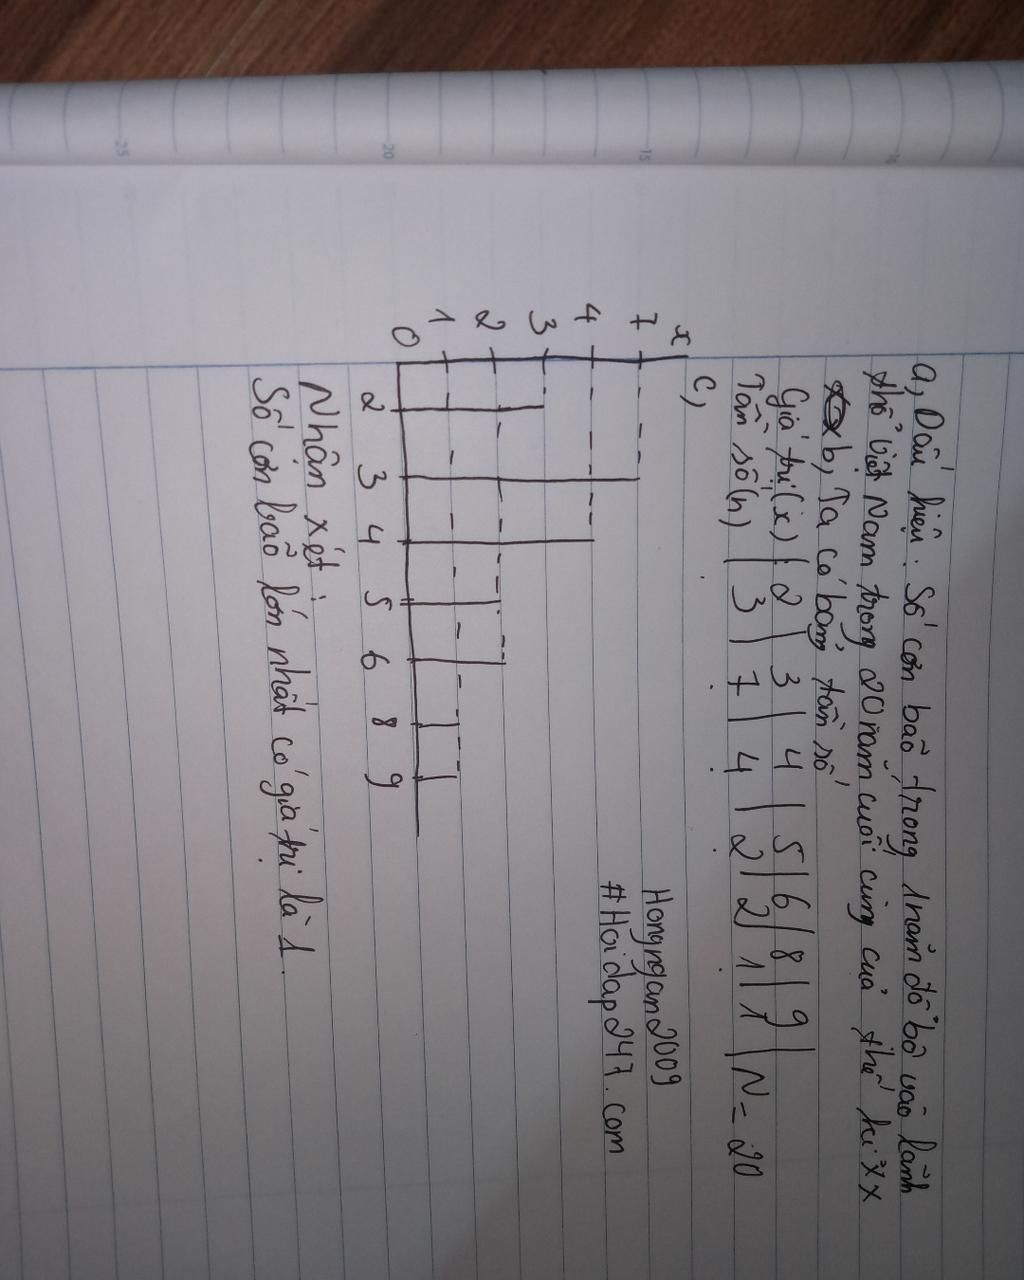 a, Dấu hiệu: Số cơn bão trong 1 năm đổ bộ vào lãnh
thổ Việt Nam trong 20 năm cuối cùng của thế kỉ XX
b, Ta có bảng tần số
Giá trị (x) | 2 | 3 | 4 | 5 | 6 | 8 | 9 |
Tần số (n) | 3 | 7 | 4 | 2 | 2 | 1 | 1 | N = 20
c,
x
7
4
3
2
1
0
2 3 4 5 6 8 9
Hongngan2009
#Hoidap247.com
Nhận xét:
Số cơn bão lớn nhất có giá trị là 1.
25
20
15